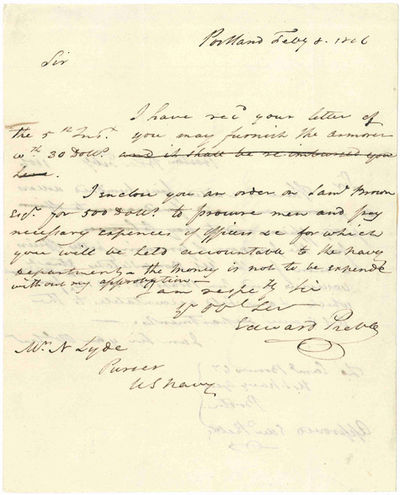 Portland Feby 8. 1806
Sir
I have recd your letter of
the 5th Inst. you may furnish the armorer
wth 30 Dolls. and it shall be reimbursed you
here.
I enclose you an order on Saml Brown
Esqr. for 500 Dolls to procure men and pay
necessary expences, of Officers &c for which
you will be held accountable to the Navy
Department — the money is not to be expended
without my approbation —
I am respecty Sir
yr Obt Ser
Edward Preble
Mr. N Lyde
Purser
US Navy